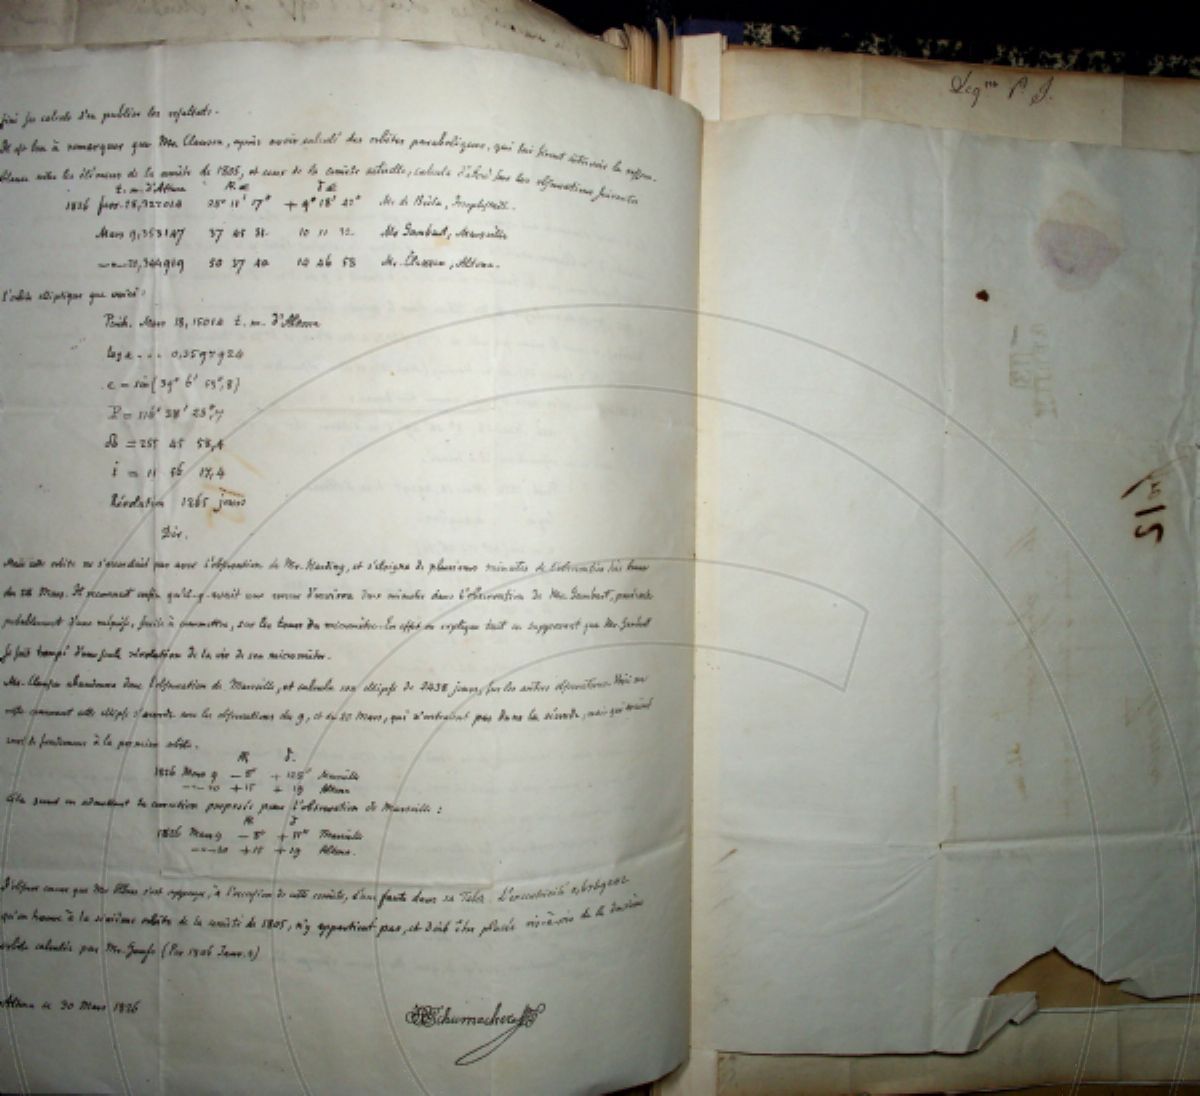 fini ses calculs d'en publier les resultats.
Il est bon à remarquer que Mr. Clausen, après avoir calculé des orbites paraboliques, qui lui firent la ressem-
blance entre les élémens de la comète de 1805, et ceux de la comète actuelle, calcula d'abord sur les observations suivantes
t. m. d'Altona AR δ
1826 Fevr. 28,327014 28° 11' 17" + 9° 18' 42" Mr. de Biela, Josephstadt.
Mars 9,353147 37 45 32 10 11 32 Mr. Gambart, Marseille
—"— 20,344919 50 37 40 10 46 58 Mr. Clausen, Altona.
l'orbite elliptique que voici:
Périh. Mars 18,15014 t. m. d'Altona
log a . . . 0,3597924
e = sin (39° 6' 59",8)
P = 116° 28' 23",7
☊ = 255 45 58,4
i = 11 56 17,4
Révolution 1265 jours
Dir.
Mais cette orbite ne s'accordait pas avec l'observation de Mr. Harding, et s'éloigna de plusieurs minutes de
du 28 Mars. Il reconnut enfin qu'il y avait une erreur d'environ deux minutes dans l'observation de Mr. Gambart,
probablement d'une méprise, facile à commettre, sur les tours du micromètre. En effet on explique tout en supposant que Mr. Gambart
se soit trompé d'une seule révolution de la vis de son micromètre.
Mr. Clausen abandonna donc l'observation de Marseille, et calcula son ellipse de 2438 jours, sur les autres observations. Voici au
reste comment cette ellipse s'accorde avec les observations du 9, et du 20 Mars, qui n'entraient pas dans la seconde, mais qui avaient
servi de fondement à la première orbite.
AR δ.
1826 Mars 9 — 8" + 128" Marseille
—"— 20 + 15 + 19 Altona
Cela serait en admettant la correction proposée pour l'observation de Marseille:
AR δ
1826 Mars 9 — 8" + 11" Marseille
—"— 20 + 15 + 19 Altona.
J'observe encore que Mr. Olbers s'est apperçu, à l'occasion de cette comète, d'une faute dans sa Table. L'excentricité 0,6769202
qu'on trouve à la sixième orbite de la comète de 1805, n'y appartient pas, et doit être placée vis-à-vis de la
orbite calculée par Mr. Gauss (Per. 1806 Janv. 2)
Altona ce 30 Mars 1826
HCSchumacher
Leg<sup>um</sup> P. J.